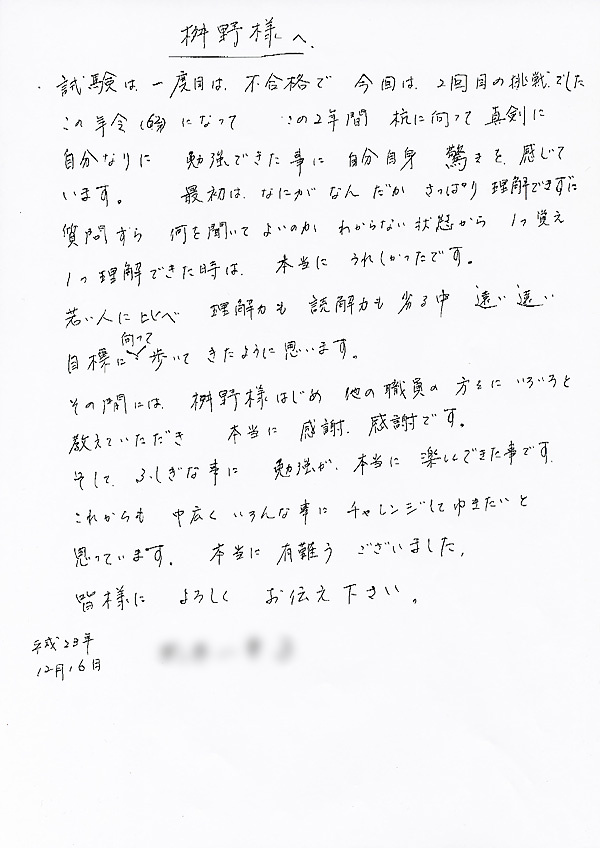 桝野様へ.
・試験は、一度目は、不合格で 今回は、2回目の挑戦でした
この年令(63)になって この2年間 机に向って真剣に
自分なりに 勉強できた事に 自分自身 驚きを、感じて
います。 最初は、なにがなんだか さっぱり理解できずに
質問すら 何を聞いてよいのか わからない状態から 1つ覚え
1つ理解できた時は、 本当に うれしかったです。
若い人に比べ 理解力も 読解力も 劣る中 遠い遠い
目標に向って歩いてきたように思います。
その間には、桝野様はじめ 他の職員の方々にいろいろと
教えていただき 本当に 感謝、感謝です。
そして、ふしぎな事に 勉強が、本当に楽しくできた事です.
これからも 巾広く いろんな事に チャレンジしてゆきたいと
思っています。 本当に 有難う ございました,
皆様に よろしく お伝え下さい。
平成23年
12月16日